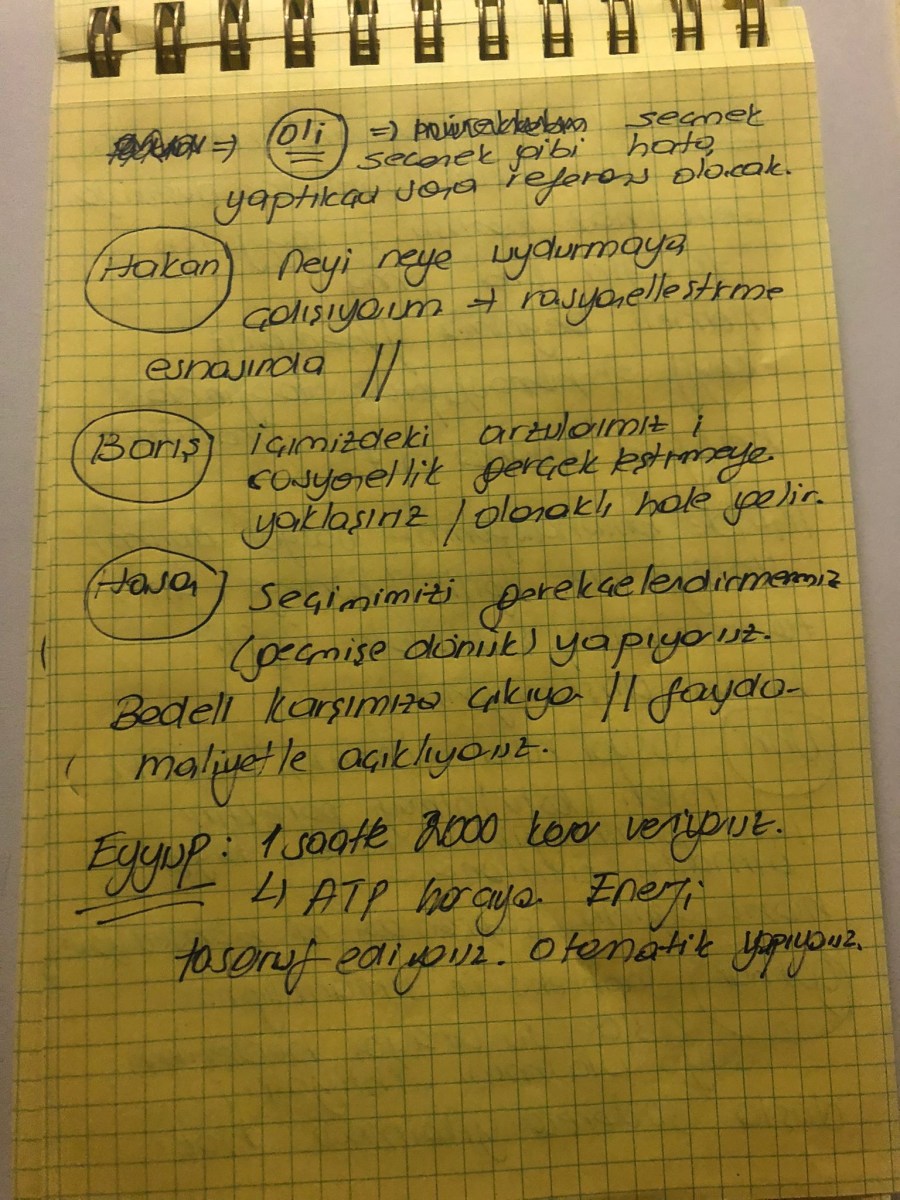 => Oli => seçmek
seçmek gibi hata
yaptıkça sora referans olacak.
Hakan neyi neye uydurmaya
çalışıyorum → rasyonelleştrme
esnasında //
Barış içimizdeki arzularımız i
rasyonellik gerçekleştirmeye
yaklaşırız / olanaklı hale gelir.
Hasa Seçimimizi gerekçelendirmemiz
(geçmişe dönük) yapıyoruz.
Bedeli karşımıza çıkıyo // fayda-
maliyetle açıklıyoruz.
Eyyup: 1 saatte 2000 karar veriyoruz.
↳ ATP harcıyo. Enerji
tasaruf ediyoruz. Otomatik yapıyouz.